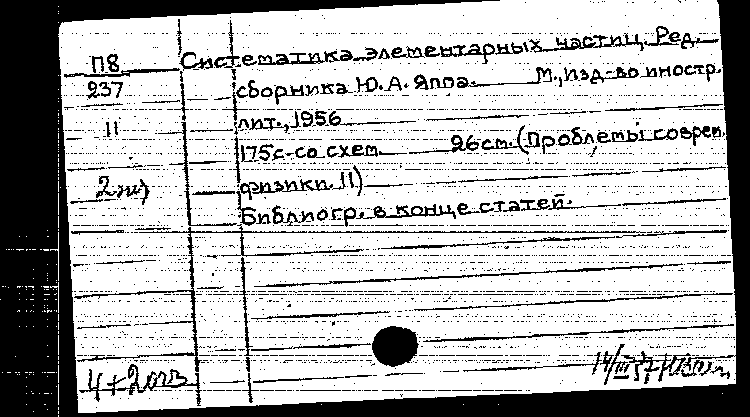 П8 Систематика элементарных частиц. Ред.
237 сборника Ю. А. Яппа. М., Изд-во иностр.
11 лит., 1956
175с. со схем. 26см. (Проблемы соврем.
физики. 11)
Библиогр. в конце статей.
4+2
14/III 57